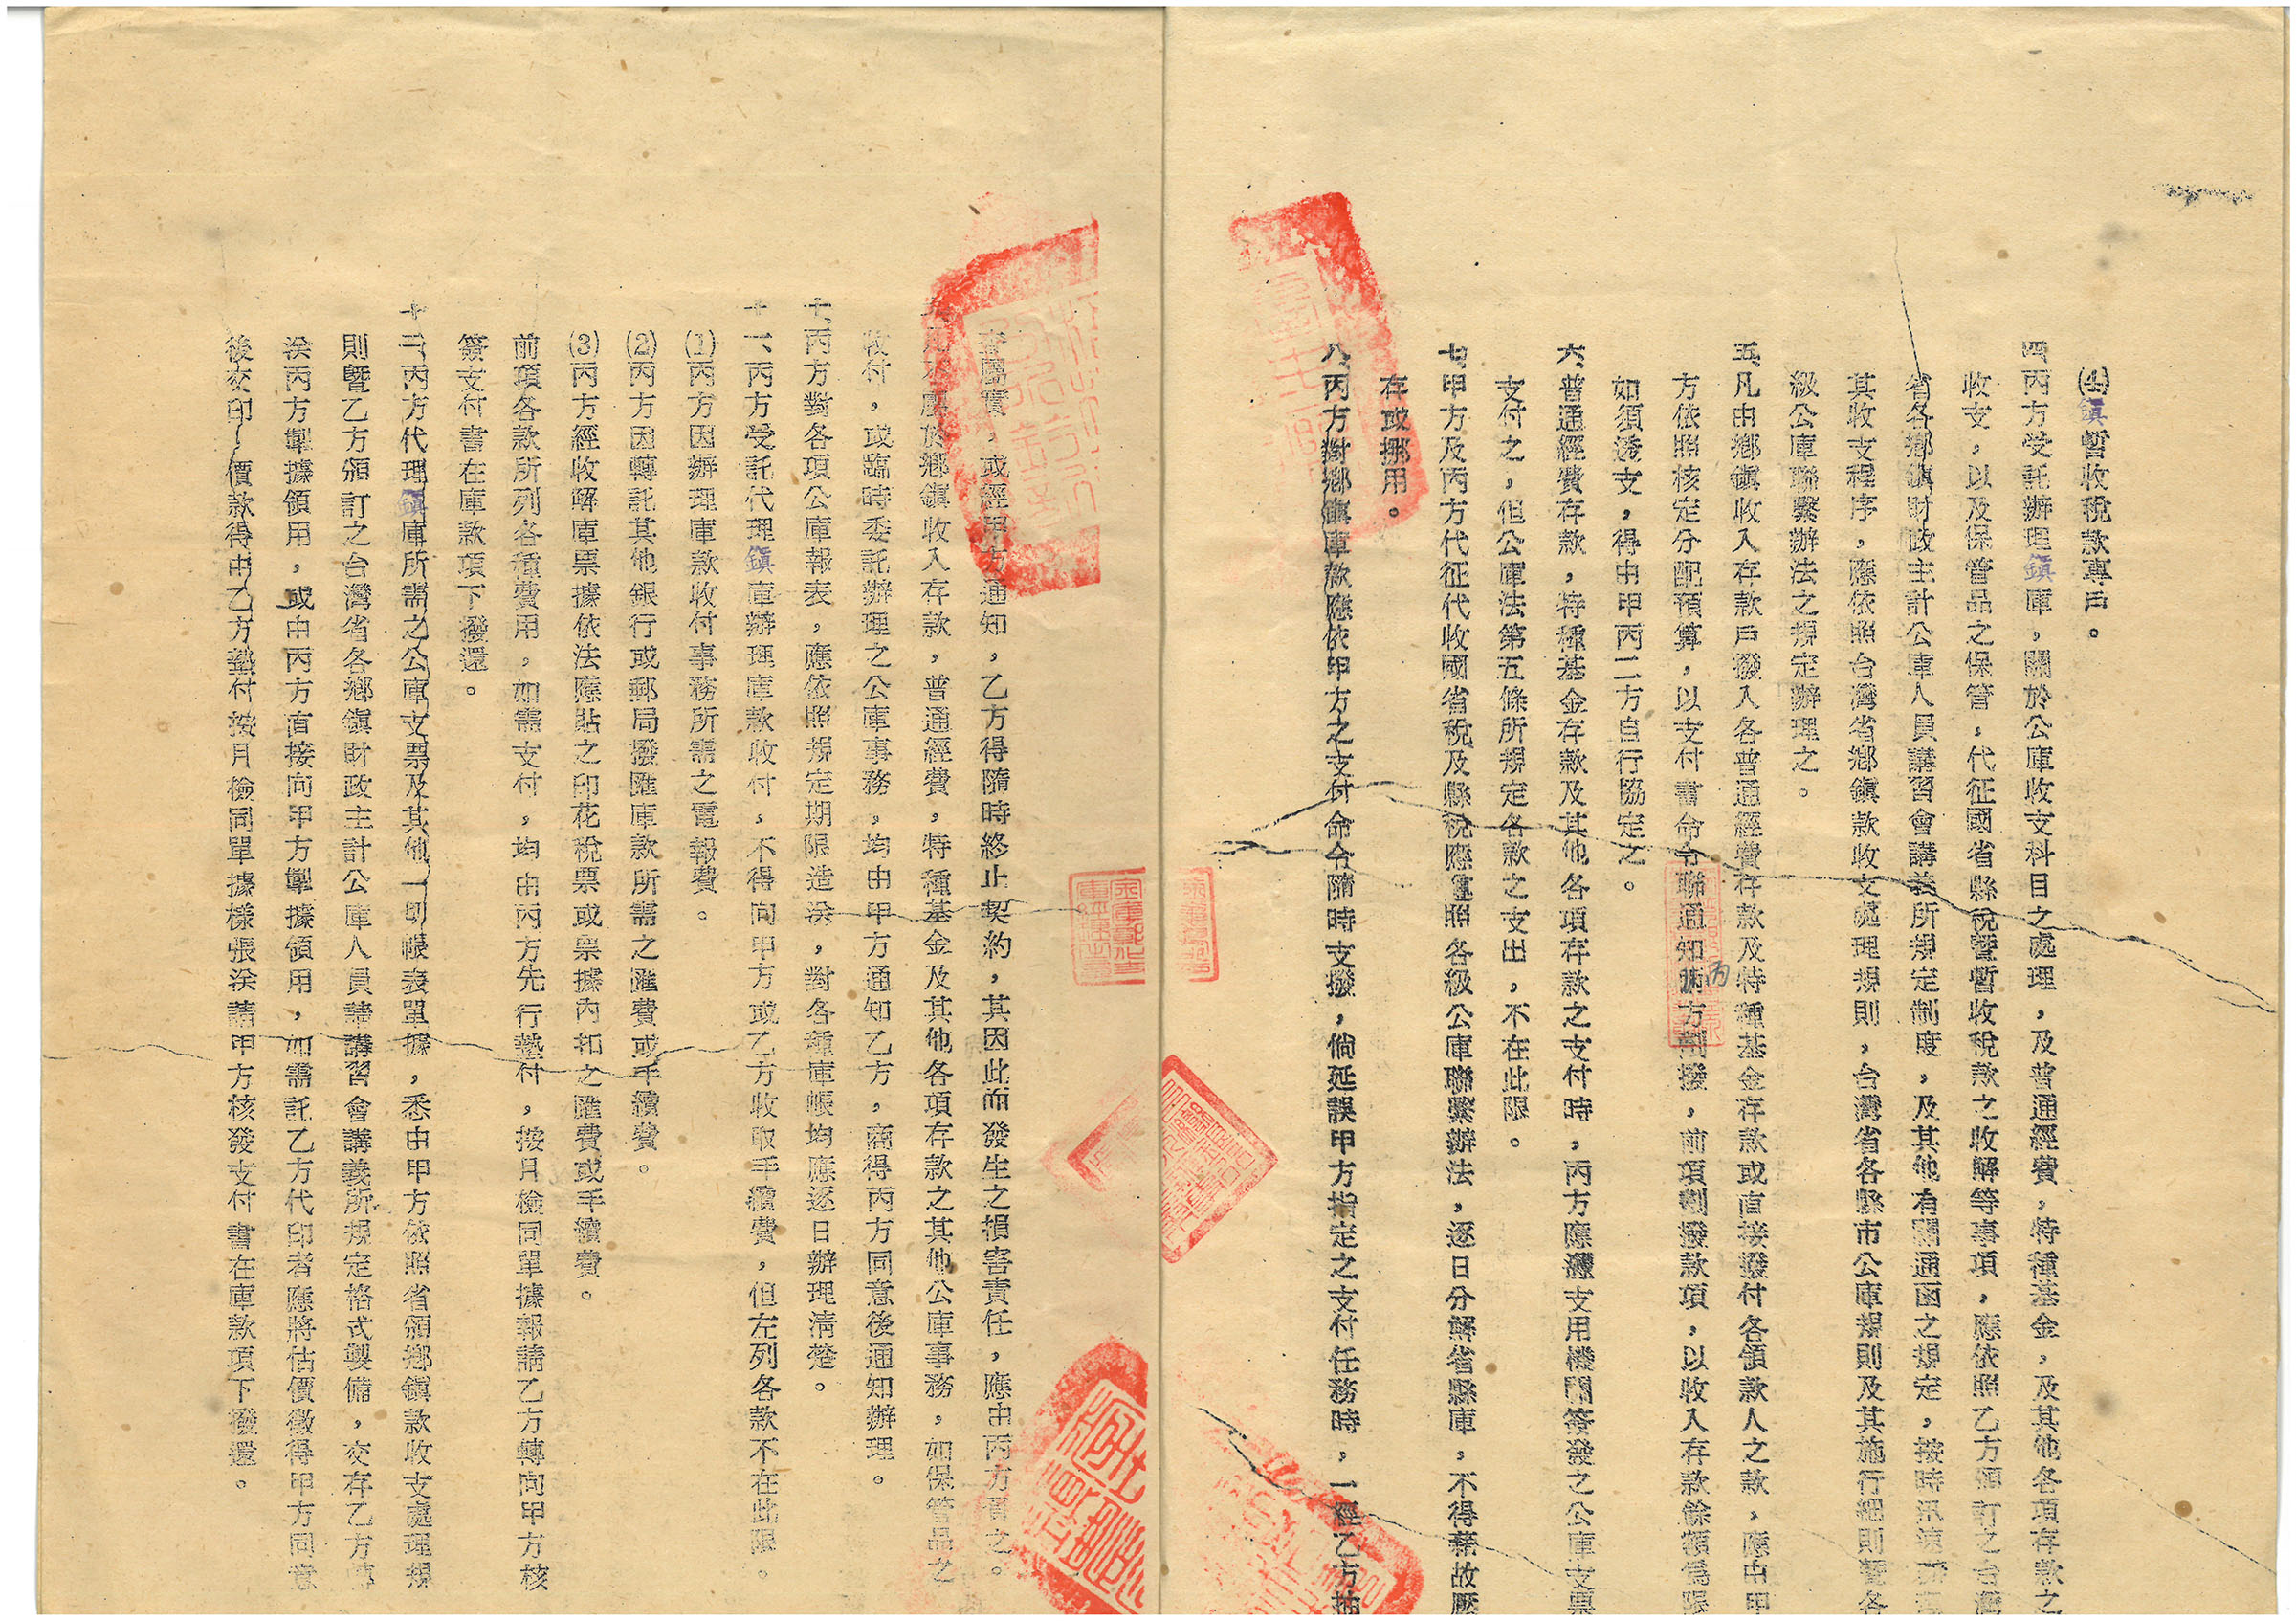 (4)鎮暫收稅款專戶。
四、丙方受託辦理鎮庫，關於公庫收支科目之處理，及普通經費，特種基金，及其他各項存款之
收支，以及保管品之保管，代征國省縣稅暨暫收稅款之收解等事項，應依照乙方頒訂之台灣
省各鄉鎮財政主計公庫人員講習會講義所規定制度，及其他有關通函之規定，按時迅速
其收支程序，應依照台灣省鄉鎮款收支處理規則，台灣省各縣市公庫規則及其施行細則暨各
級公庫聯繫辦法之規定辦理之。
五、凡由鄉鎮收入存款戶撥入各普通經費存款及特種基金存款或直接撥付各領款人之款，應由甲
方依照核定分配預算，以支付書命令聯通知丙方劃撥，前項劃撥款項，以收入存款餘額為限
如須透支，得由甲丙二方自行協定之。
六、普通經費存款，特種基金存款及其他各項存款之支付時，丙方應憑支用機關簽發之公庫支票
支付之，但公庫法第五條所規定各款之支出，不在此限。
七、甲方及丙方代征代收國省稅及縣稅應遵照各級公庫聯繫辦法，逐日分解省縣庫，不得藉故壓
存或挪用。
八、丙方對鄉鎮庫款應依甲方之支付命令隨時支撥，倘延誤甲方指定之支付任務時，一經乙方抽
查屬實，或經甲方通知，乙方得隨時終止契約，其因此而發生之損害責任，應由丙方負之。
九、凡不屬於鄉鎮收入存款，普通經費，特種基金及其他各項存款之其他公庫事務，如保管品之
收付，或臨時委託辦理之公庫事務，均由甲方通知乙方，商得丙方同意後通知辦理。
十、丙方對各項公庫報表，應依照規定期限造送，對各種庫帳均應逐日辦理清楚。
十一、丙方受託代理鎮庫辦理庫款收付，不得向甲方或乙方收取手續費，但左列各款不在此限。
(1)丙方因辦理庫款收付事務所需之電報費。
(2)丙方因轉託其他銀行或郵局撥匯庫款所需之匯費或手續費。
(3)丙方經收解庫票據依法應貼之印花稅票或票據內扣之匯費或手續費。
前項各款所列各種費用，如需支付，均由丙方先行墊付，按月檢同單據報請乙方轉向甲方核
簽支付書在庫款項下撥還。
十二、丙方代理鎮庫所需之公庫支票及其他一切帳表單據，悉由甲方依照省頒鄉鎮款收支處理規
則暨乙方頒訂之台灣省各鄉鎮財政主計公庫人員講講習會講義所規定格式製備，交存乙方轉
送丙方掣據領用，或由丙方直接向甲方掣據領用，如需託乙方代印者應將估價徵得甲方同意
後交印，價款得由乙方墊付按月檢同單據樣張送請甲方核發支付書在庫款項下撥還。